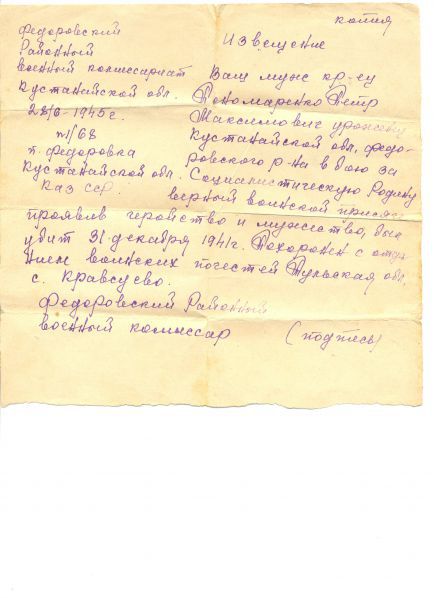 копия
Федоровский
Районный
военный комиссариат
Кустанайской обл.
28/6-1945г.
п1/68
п. Федоровка
Кустанайской обл.
Каз ССР.
Извещение
Ваш муж кр-ец
Пономаренко Петр
Максимович уроженец
Кустанайской обл, Федо-
ровского р-на в бою за
Социалистическую Родину
верный воинской присяге
проявив геройство и мужество, был
убит 31 декабря 1941г. Похоронен с отда
нием воинских почестей Тульская обл,
с.
Федоровский Районный
военный комиссар (подпись)